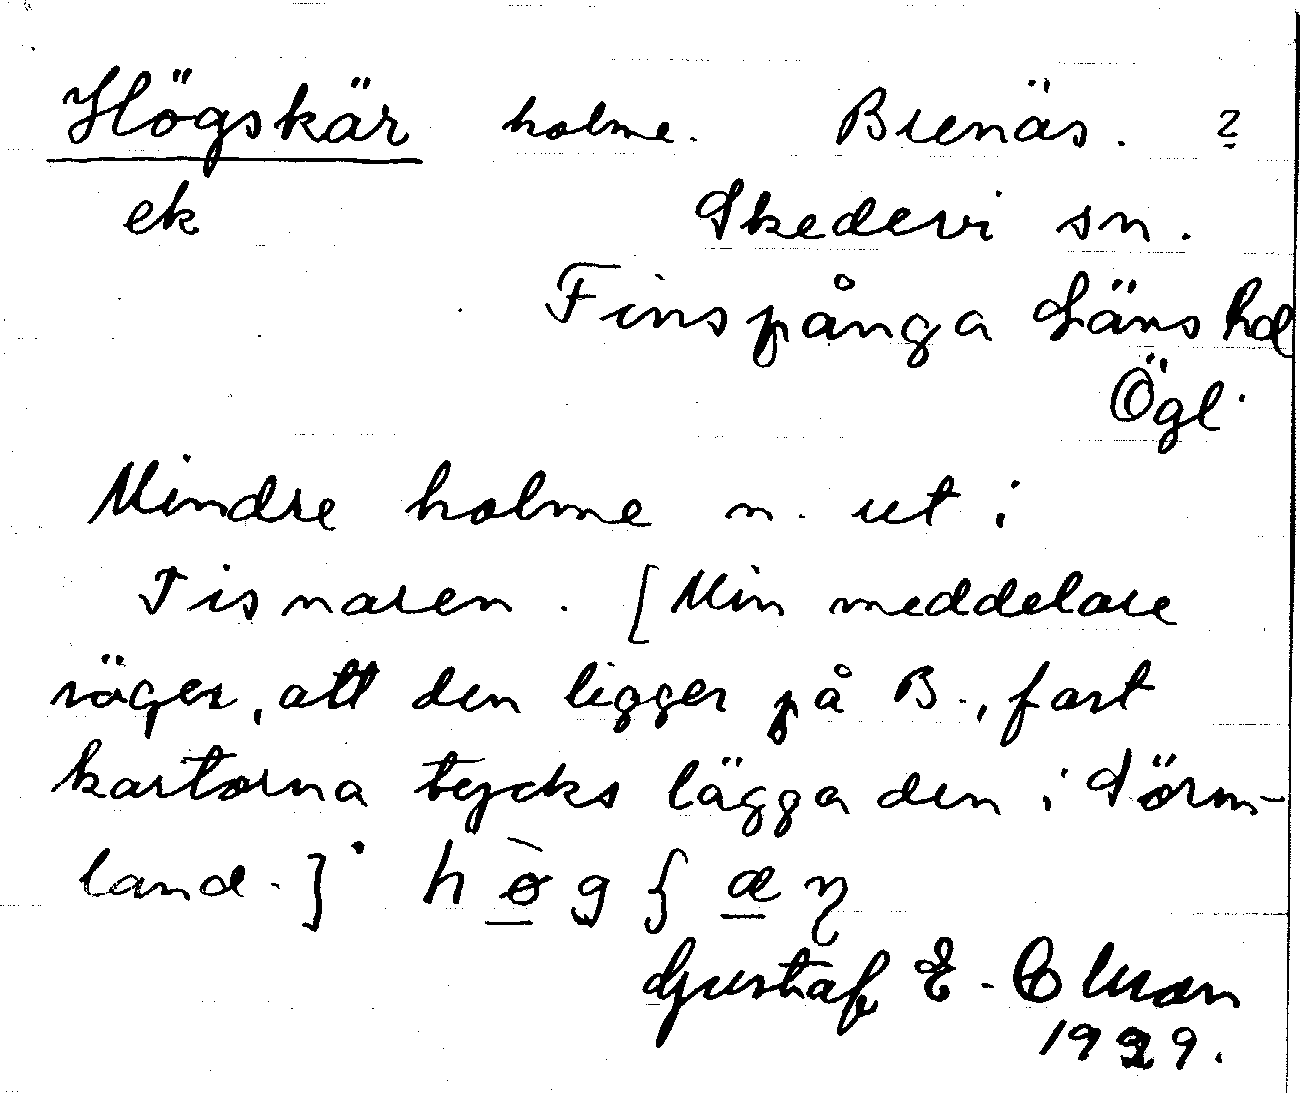 Högskär holme. Brenäs. ?
ek Skedevi sn.
Finspånga Läns hd
Ögl.
Mindre holme n. ut i
Tisnaren. [Min meddelare
säger, att den ligger på B., fast
kartorna tycks lägga den i Sörm-
land.]
Gustaf E.
1929.